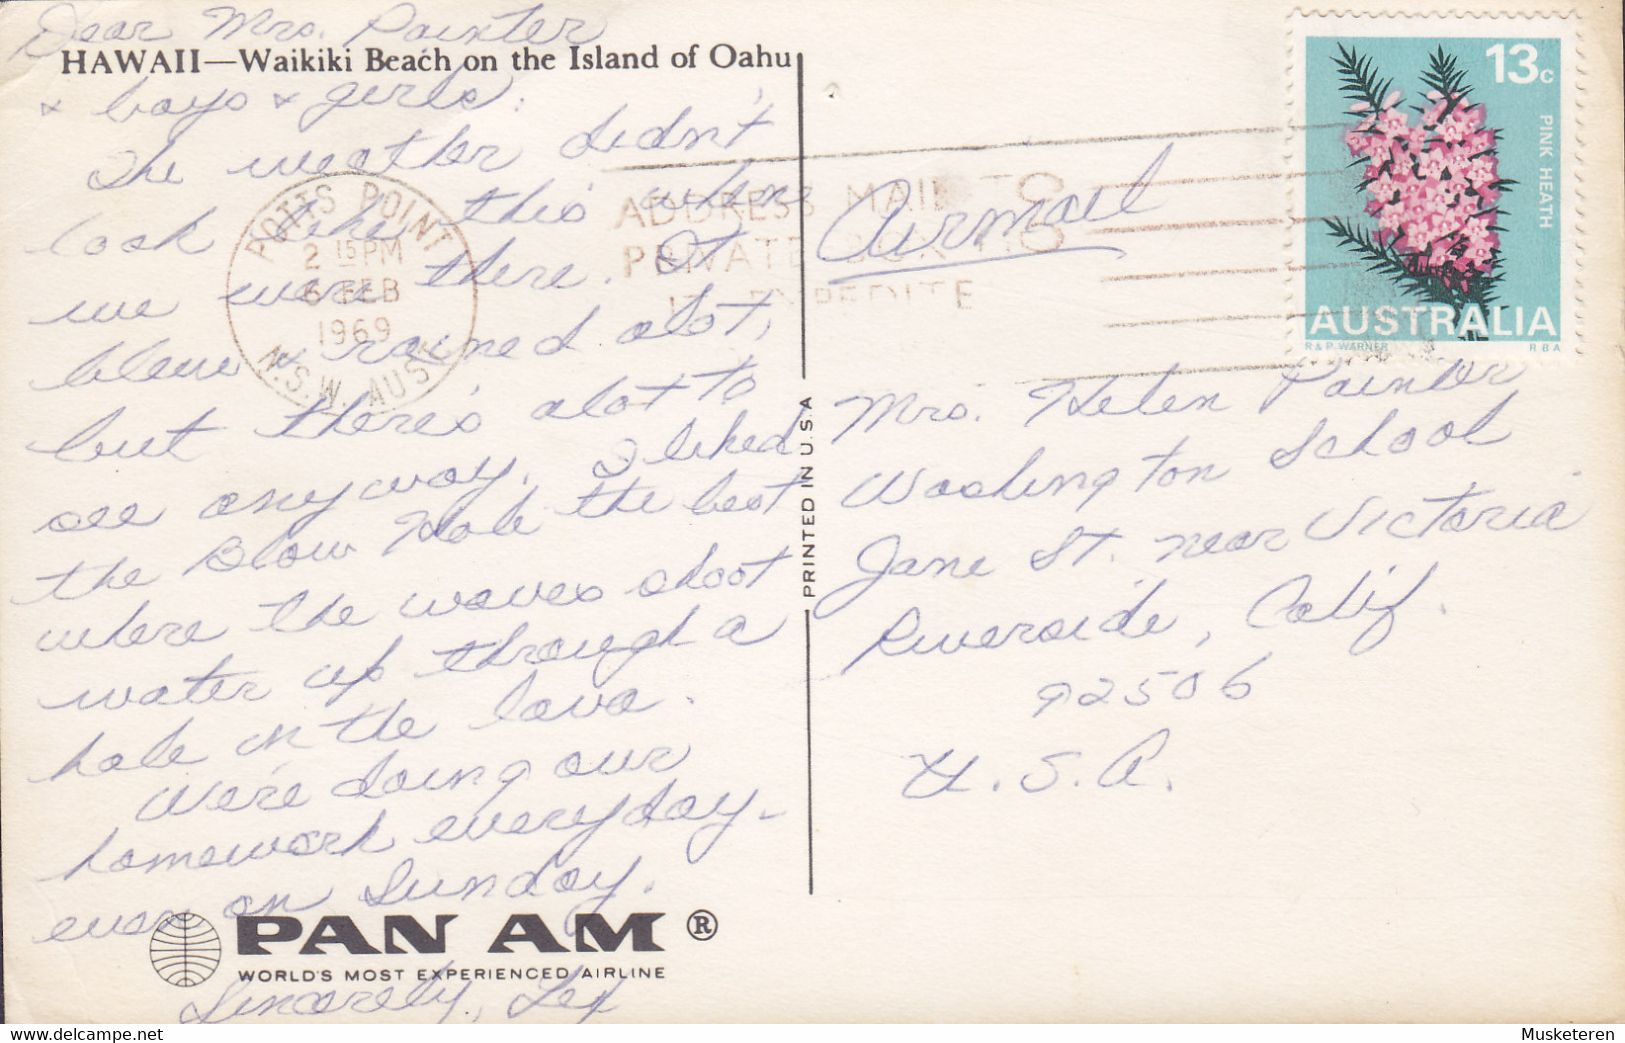 Dear Mrs. Painter
HAWAII—Waikiki Beach on the Island of Oahu
& boys & girls:
The weather didn't
look like this when
we were there. It
blew & rained alot,
but there's alot to
see anyway. I liked
the Blow Hole the best
where the waves shoot
water up through a
hole in the lava.
We're doing our
homework everyday-
even on Sunday.
PAN AM ®
WORLD'S MOST EXPERIENCED AIRLINE
Sincerely, Lex
PRINTED IN U.S.A
POTTS POINT
2 15 PM
6 FEB
1969
N.S.W. AUST
ADDRESS MAIL TO
PRIVATE
EXPEDITE
Airmail
13c
PINK HEATH
AUSTRALIA
R & P WARNER
RBA
Mrs. Helen Painter
Washington School
Jane St. near Victoria
Riverside, Calif.
92506
U.S.A.
www.delcampe.net
Musketeren